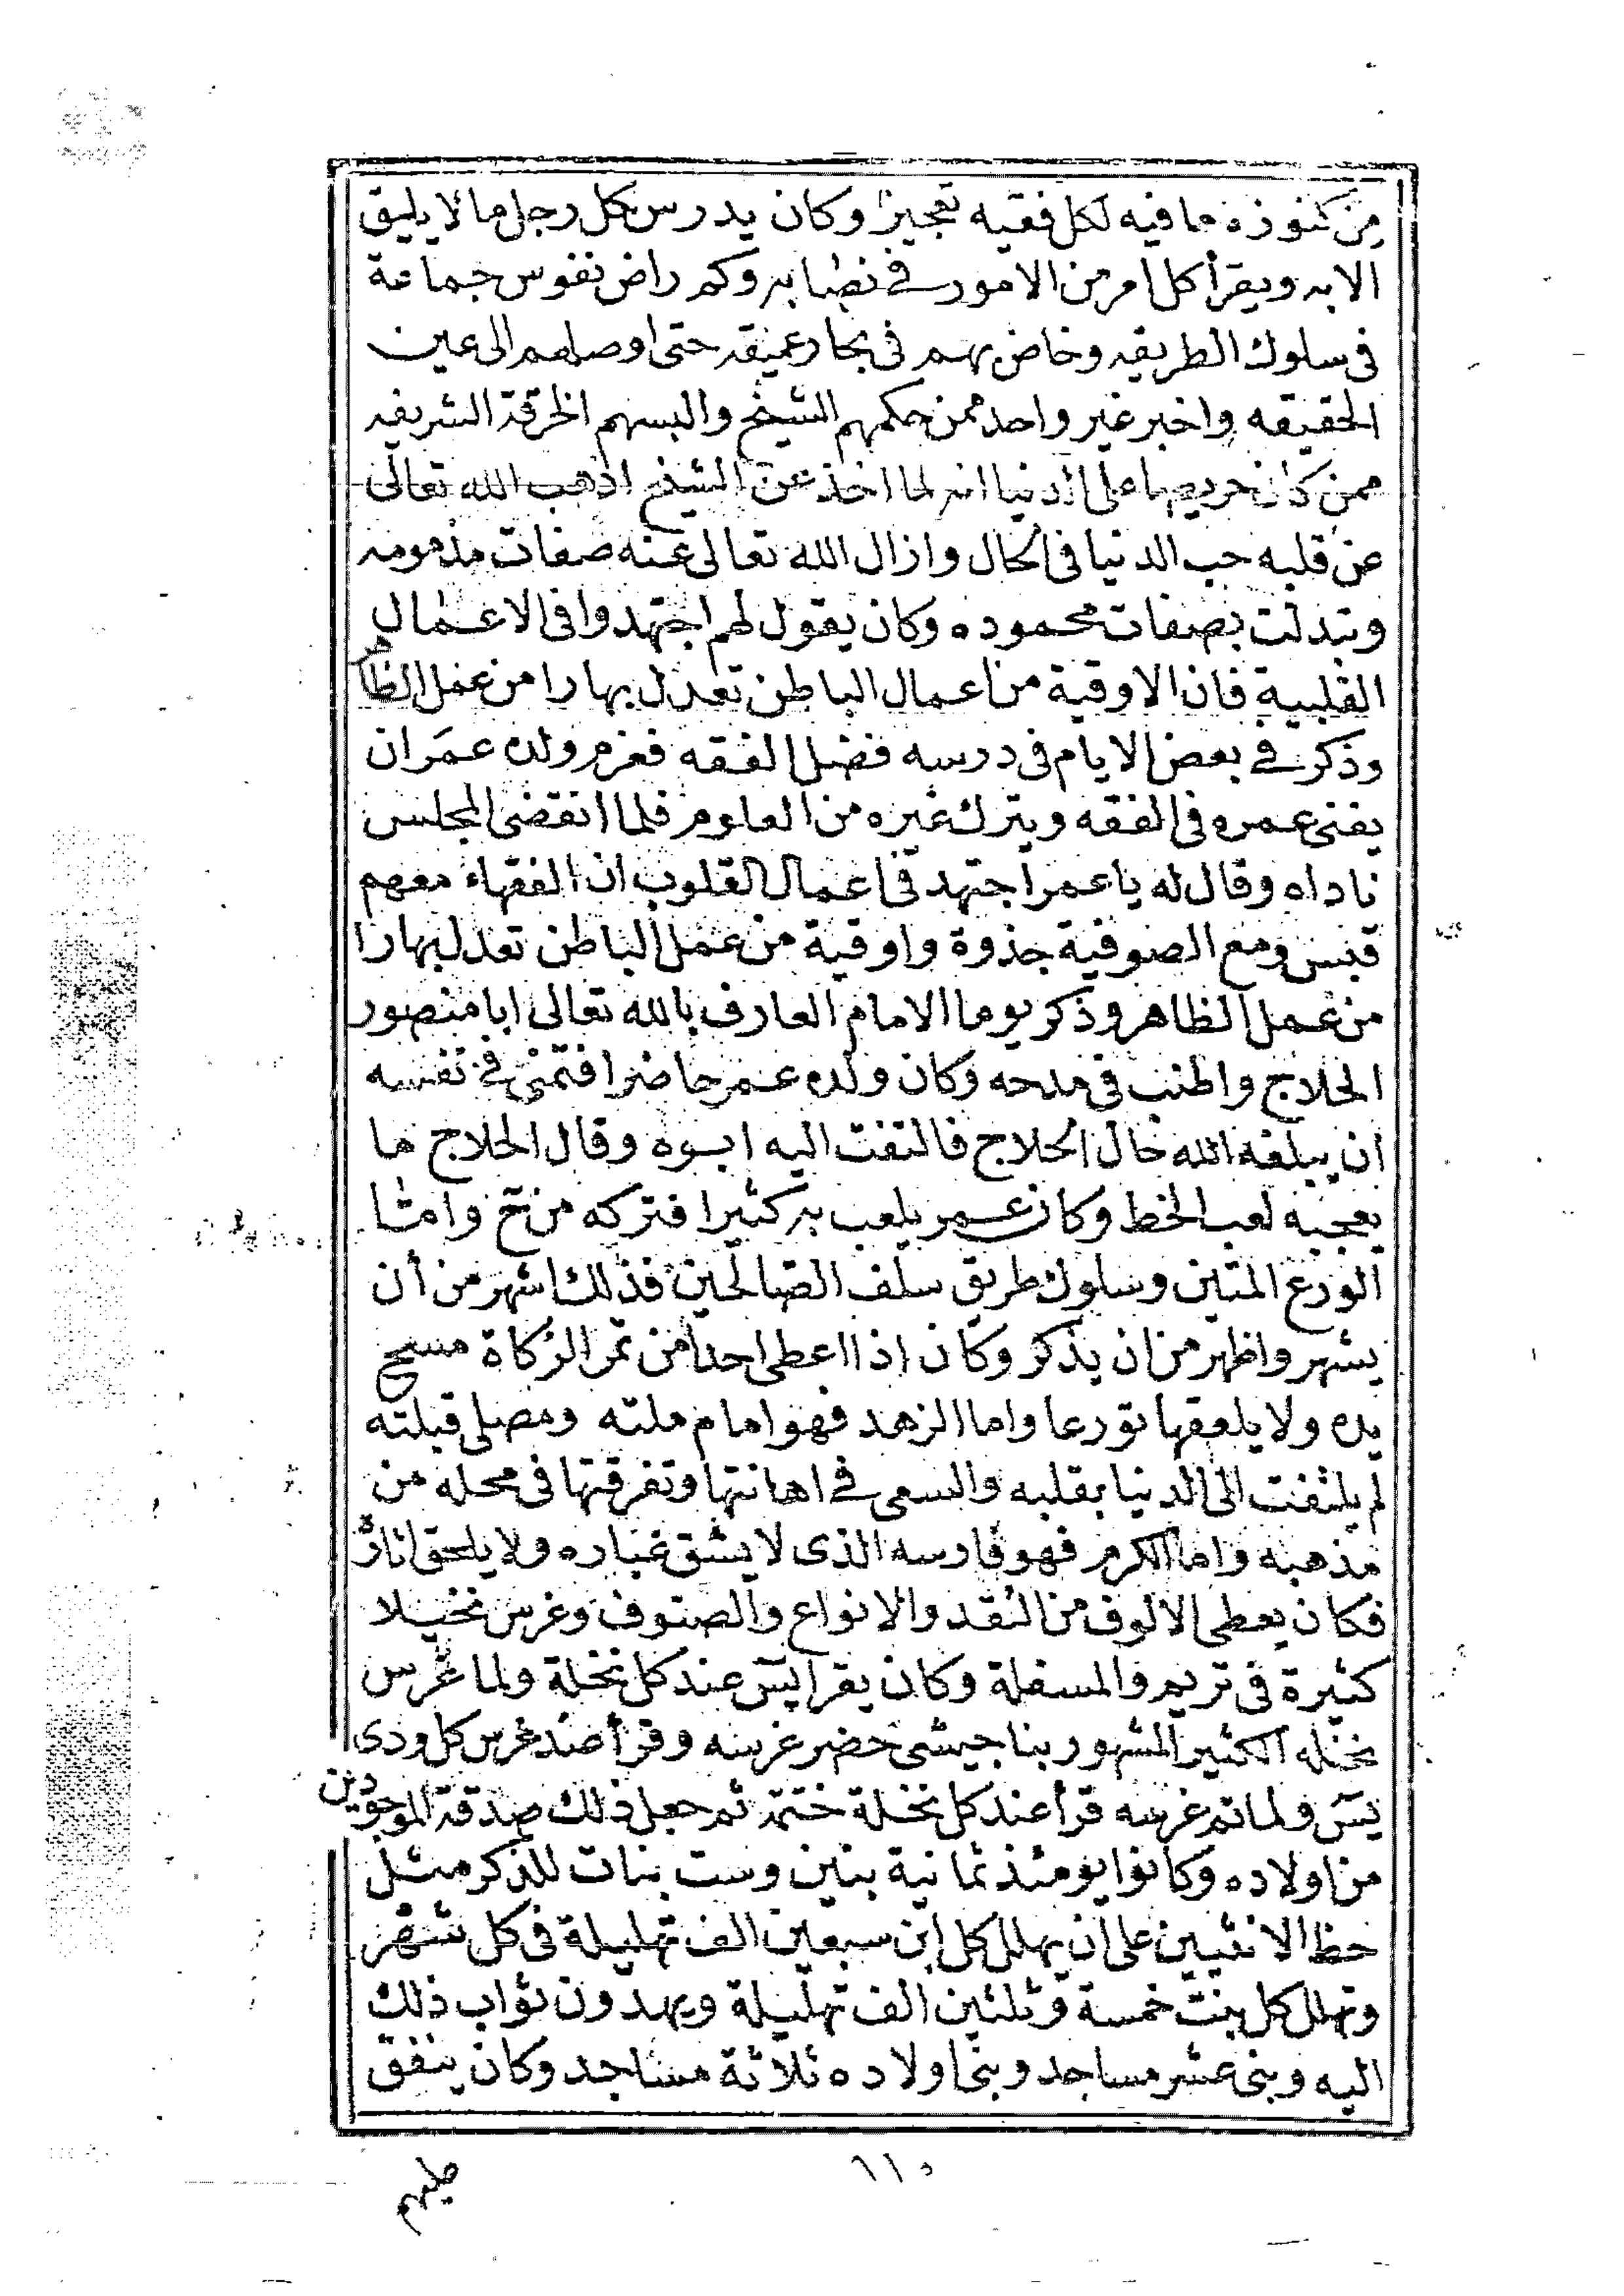 من كنوزه ما فيه لكل فقيه تعجيز وكان يدرس كل رجل ما لا يليق
الا به ويقرأ كل امر من الامور في نصابه وكم راض نفوس جماعة
فى سلوك الطريقه وخاض بهم فى بحار عميقه حتى اوصلهم الى عين
الحقيقه واخبر غير واحد ممن حكمهم الشيخ والبسهم الخرقة الشريفه
ممن كان حريصا على الدنيا انه لما اخذ عن الشيخ اذهب الله تعالى
عن قلبه حب الدنيا فى الحال وازال الله تعالى عنه صفات مذمومه
وتبدلت بصفات محموده وكان يقول لهم اجتهدوا فى الاعمال
القلبية فان الاوقية من اعمال الباطن تعدل بهارا من عمل الظاهر
وذكر في بعض الايام فى درسه فضل الفقه فعزم ولده عمر ان
يفنى عمره فى الفقه ويترك غيره من العلوم فلما انقضى المجلس
ناداه وقال له يا عمر اجتهد فى اعمال القلوب ان الفقهاء معهم
قبس ومع الصوفية جذوة واوقية من عمل الباطن تعدل بهارا
من عمل الظاهر وذكر يوما الامام العارف بالله تعالى ابا منصور
الحلاج واطنب فى مدحه وكان ولده عمر حاضرا فتمنى في نفسه
ان يبلغه الله حال الحلاج فالتفت اليه ابوه وقال الحلاج ما
يعجبه لعب الخط وكان عمر يلعب به كثيرا فتركه من تح واما
الورع المتين وسلوك طريق سلف الصالحين فذلك اشهر من أن
يشهر واظهر من ان يذكر وكان اذا اعطى احدا من تمر الزكاة مسح
يده ولا يلعقها تورعا واما الزهد فهو امام ملته ومصلى قبلته
لم يلتفت الى الدنيا بقلبه والسعى في اهانتها وتفرقتها فى محله من
مذهبه واما الكرم فهو فارسه الذى لا يشق غباره ولا يلحق اثاره
فكان يعطى الالوف من النقد والانواع والصنوف وغرس نخيلا
كثيرة فى تريم والمسفلة وكان يقرأ يس عند كل نخلة ولما غرس
نخله الكثير المشهور بناجيشى حضر غرسه وقرأ عند غرس كل ودى
يس ولما تم غرسه قرأ عند كل نخلة ختمة ثم جعل ذلك صدقة الموجودين
من اولاده وكانوا يومئذ ثمانية بنين وست بنات للذكر مثل
حظ الانثيين على ان يهلل كل ابن سبعين الف تهليلة فى كل شهر
وتهلل كل بنت خمسة وثلثين الف تهليلة ويهدون ثواب ذلك
اليه وبنى عشر مساجد وبنى اولاده ثلاثة مساجد وكان ينفق
١١٥
عليهم